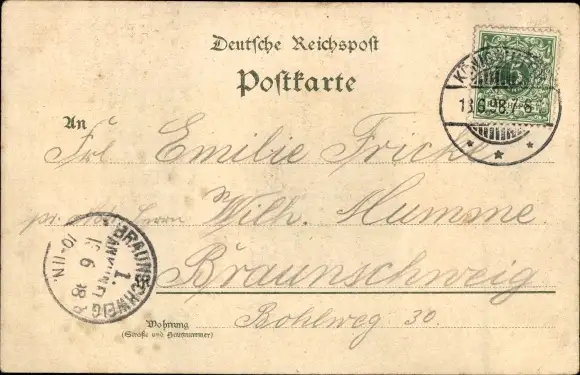 Deutsche Reichspost
Postkarte
An
Frl. Emilie Fricke
pr. Adr. Herrn Wilh. Mumme
Braunschweig
Wohnung
(Straße und Hausnummer)
Bohlweg 30.
13.6.98.7-8
BRAUNSCHWEIG
1.
6
98
10-11N.